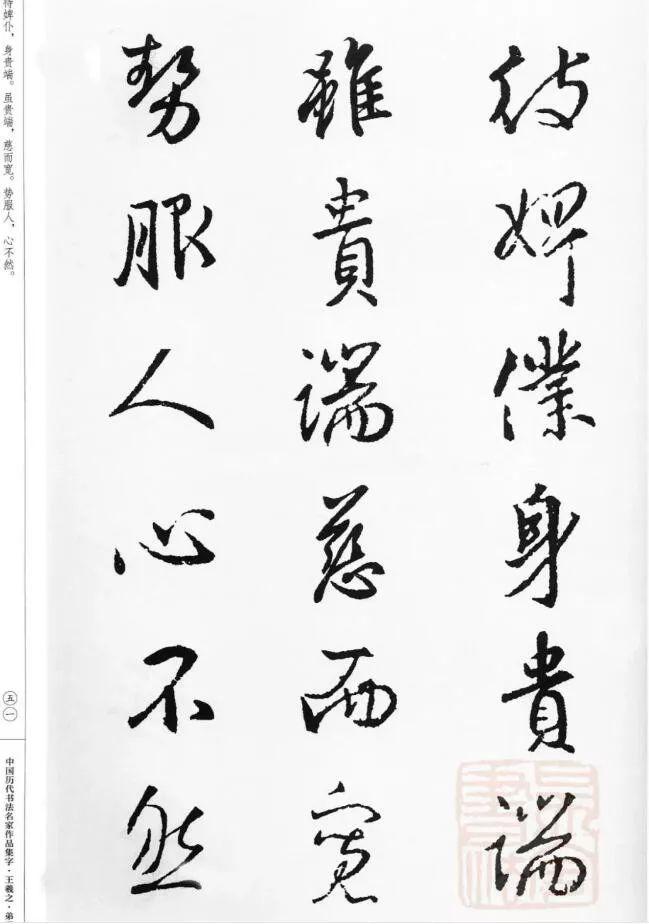 待婢僕身貴端
雖貴端慈而寬
勢服人心不然
待婢仆，身贵端。虽贵端，慈而宽。势服人，心不然。
五一
中国历代书法名家作品集字·王羲之·弟